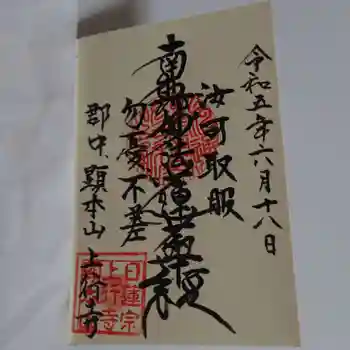 令和五年六月十八日
汝可取服
南無妙法蓮華経
勿憂不差
郡中、顕本山 上行寺
日蓮宗
上行寺